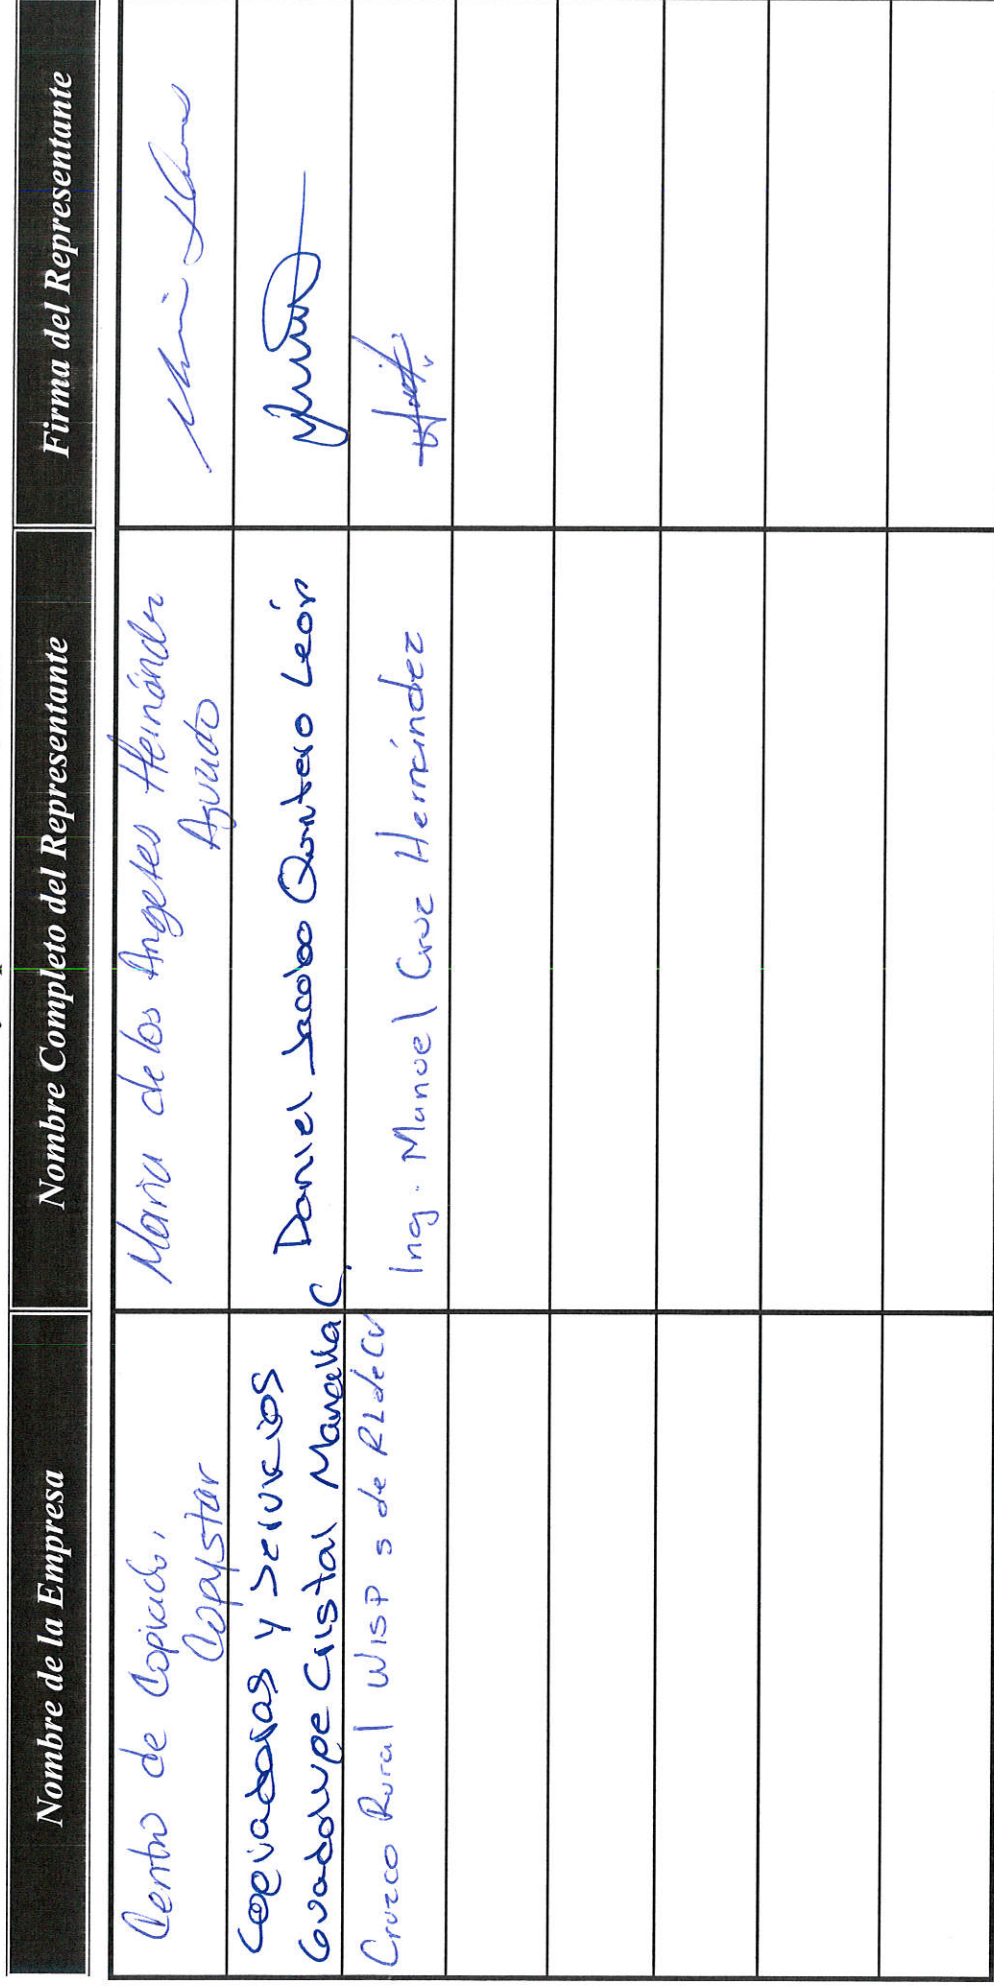 Nombre de la Empresa
Nombre Completo del Representante
Firma del Representante
Centro de Copiado,
Copystar
Maria de los Angeles Hernández
Aguado
Copiadoras y Servicios
Guadalupe Cristal Mancilla C.
Daniel Jacobo Quintero León
Cruzco Rural WISP s de RL de CV
Ing. Manuel Cruz Hernández